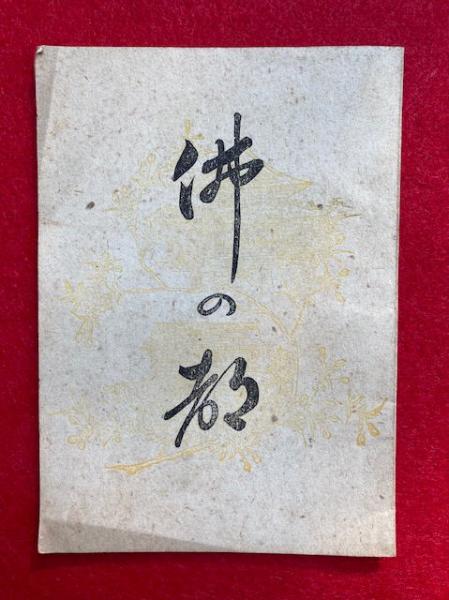 佛の都